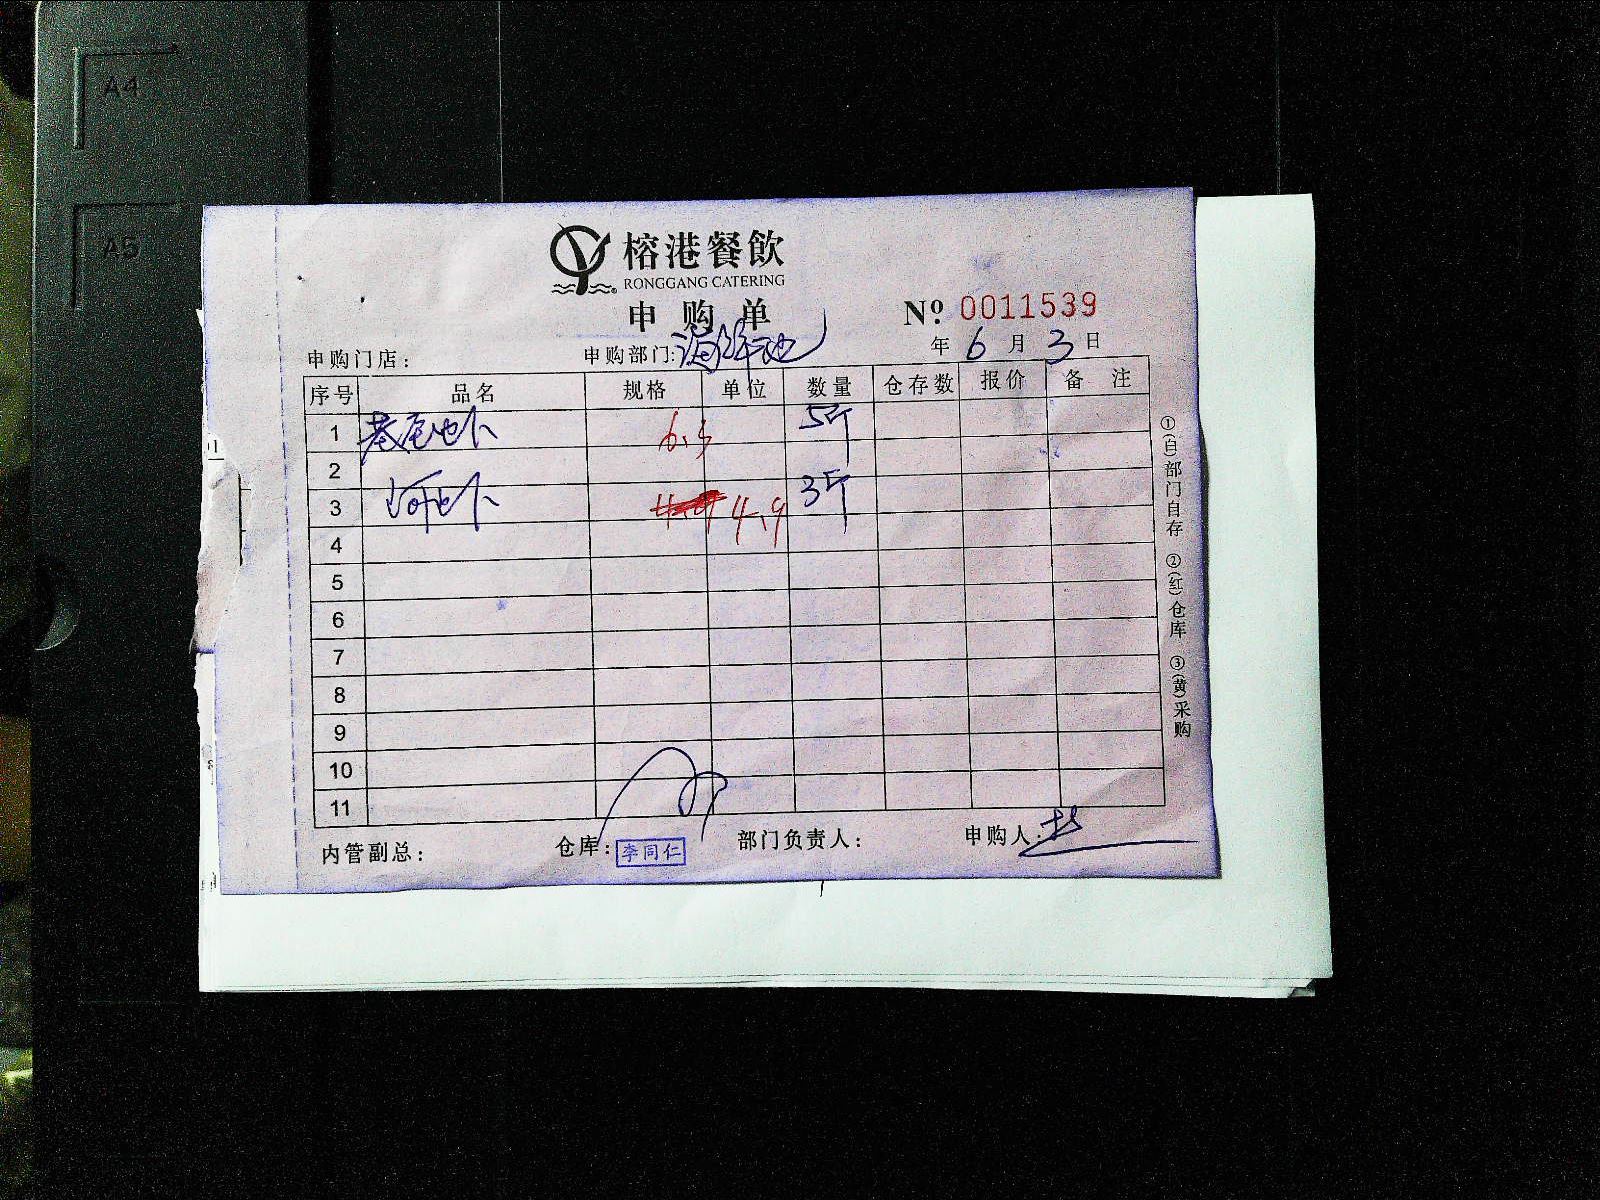 A4
A5
榕港餐飲
RONGGANG CATERING
申购单
№ 0011539
申购门店： 申购部门：海鲜池 年 6 月 3 日
序号 品名 规格 单位 数量 仓存数 报价 备注
1 6.5 5斤
2
3 4.9 3斤
4
5
6
7
8
9
10
11
内管副总： 仓库：李同仁 部门负责人： 申购人：
①(白)部门自存 ②(红)仓库 ③(黄)采购